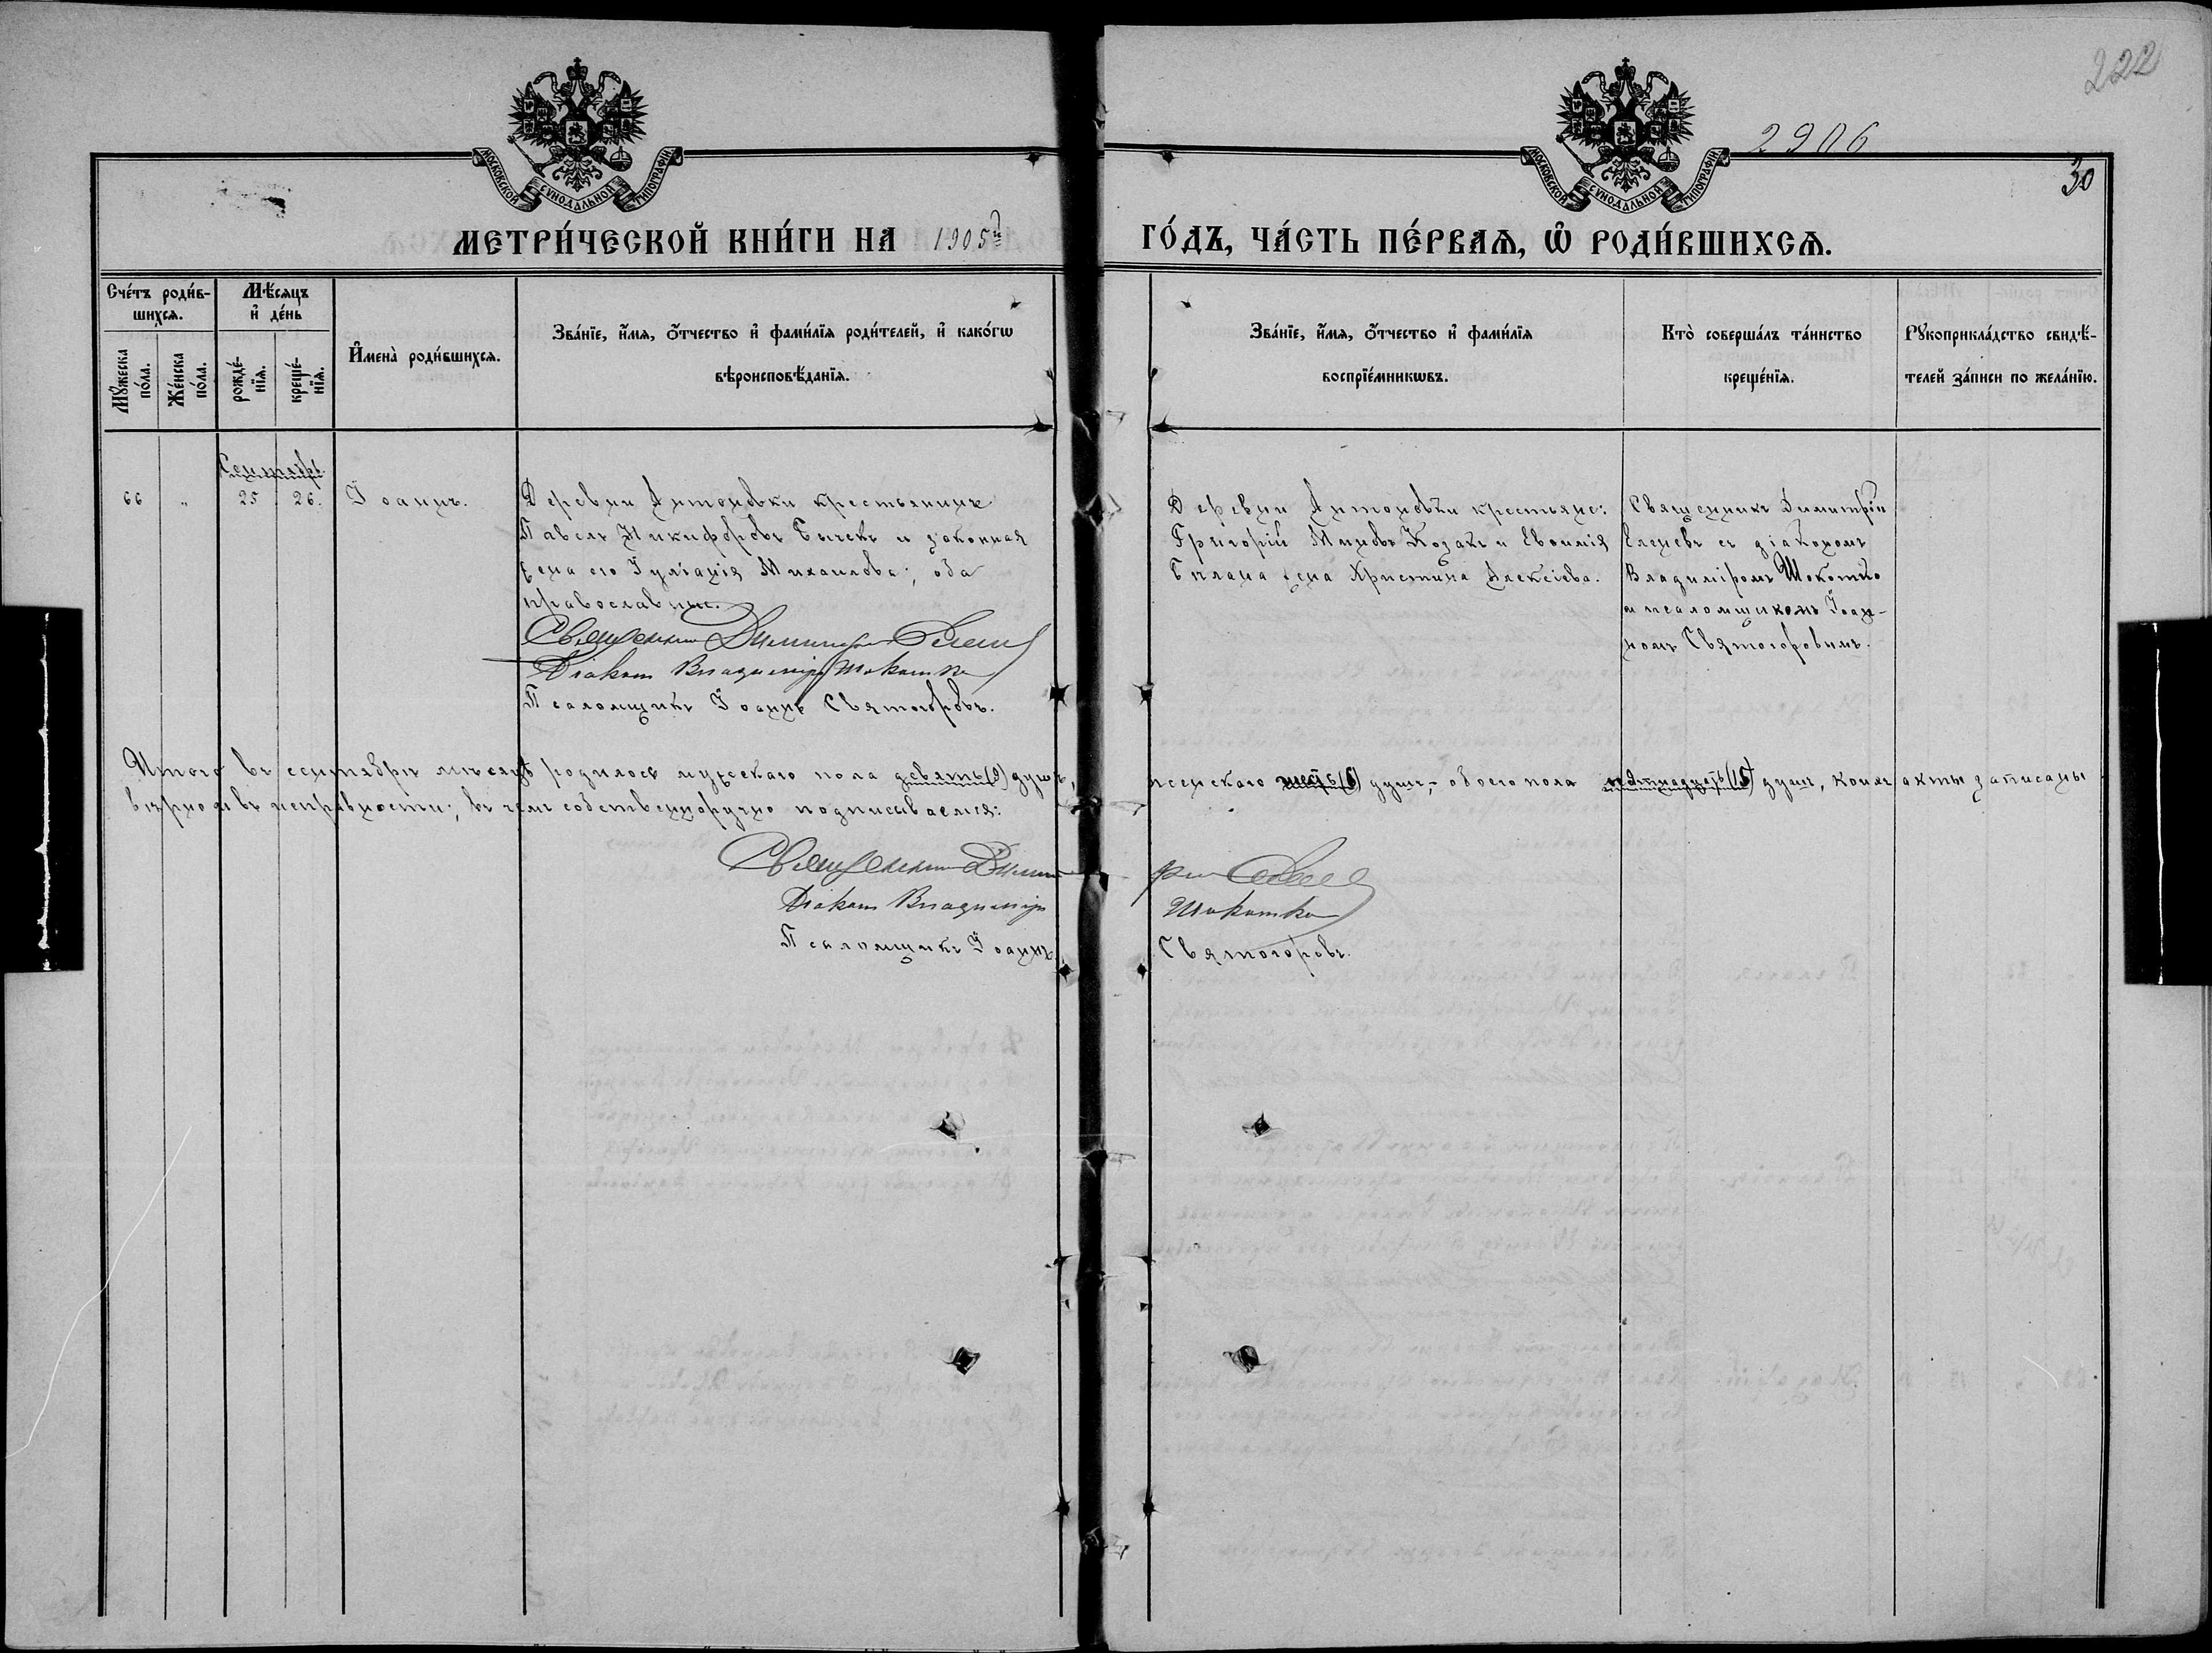 222
2906
30
МОСКОВСКОЙ СѴНОДАЛЬНОЙ ТИПОГРАФІИ
МОСКОВСКОЙ СѴНОДАЛЬНОЙ ТИПОГРАФІИ
МЕТРИ́ЧЕСКОЙ КНИ́ГИ НА 1905й ГО́ДЪ, ЧА́СТЬ ПЕ́РВАЯ, Ѡ РОДИ́ВШИХСЯ.
Сче́тъ роди́в-
шихся.
Мꙋ́жеска по́ла.
Же́нска по́ла.
Мѣ́сяцъ и҆ де́нь
рожде́-нїя.
креще́-нїя.
И҆мена̀ роди́вшихся.
Зва́нїе, и҆́мя, ѻ҆́тчество и҆ фами́лїя роди́телей, и҆ како́гѡ
вѣроисповѣ́данїя.
Зва́нїе, и҆́мя, ѻ҆́тчество и҆ фами́лїя
воспрїе́мникѡвъ.
Кто̀ соверша́лъ та́инство
креще́нїя.
Рꙋкоприкла́дство свидѣ́-
телей за́писи по жела́нїю.
Сентябрь
66 „ 25 26. Іоаннъ.
Деревни Антоновки крестьянинъ
Павелъ Никифоровъ Бычекъ и законная
жена его Іуліанія Михаилова; оба
православные.
Священникъ Димитрій
Діаконъ Владиміръ Шокотко
Псаломщикъ Іоаннъ Святогоровъ.
Деревни Антоновки крестьяне:
Григорій Миновъ Козакъ и Евѳимія
жена Христина Алексіева.
Священникъ Димитрій
Еленевъ съ діакономъ
Владиміромъ Шокотко
и псаломщикомъ Іоан-
номъ Святогоровымъ.
Итого въ сентябрѣ мѣсяцѣ родилось мужескаго пола девять (9) душъ, женскаго шесть (6) душъ,- обоего пола пятнадцать (15) душъ, коихъ акты записаны
вѣрно и въ исправности; въ чемъ собственноручно подписываемся:
Священникъ Димитрій
Діаконъ Владиміръ Шокотко
Псаломщикъ Іоаннъ Святогоровъ.